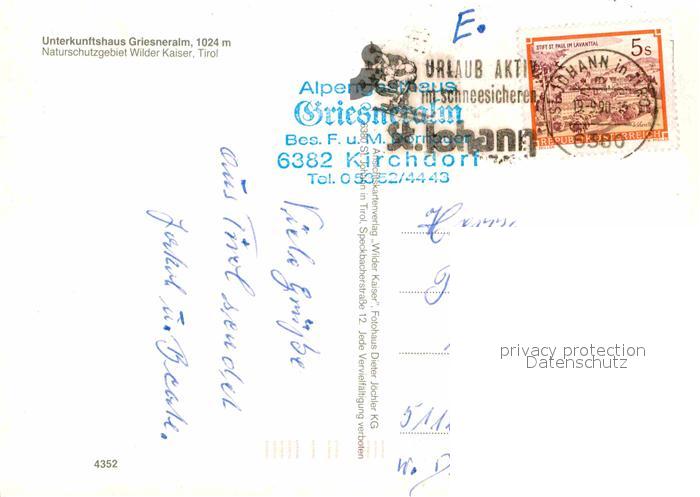 Unterkunftshaus Griesneralm, 1024 m
Naturschutzgebiet Wilder Kaiser, Tirol
E.
STIFT ST. PAUL IM LAVANTTAL
5 S
REPUBLIK ÖSTERREICH
URLAUB AKTIV
im schneesicheren
St. Johann
ST. JOHANN in TIROL
6380
Alpengasthaus
Griesneralm
Bes. F. u. M.
6382 Kirchdorf
Tel. 05352/4443
Viele Grüße
aus Tirol senden
u. Beate.
Ansichtskartenverlag „Wilder Kaiser", Fotohaus Dieter Jöchler KG
6380 St. Johann in Tirol, Speckbacherstraße 12. Jede Vervielfältigung verboten
H
511
W.
privacy protection
Datenschutz
4352